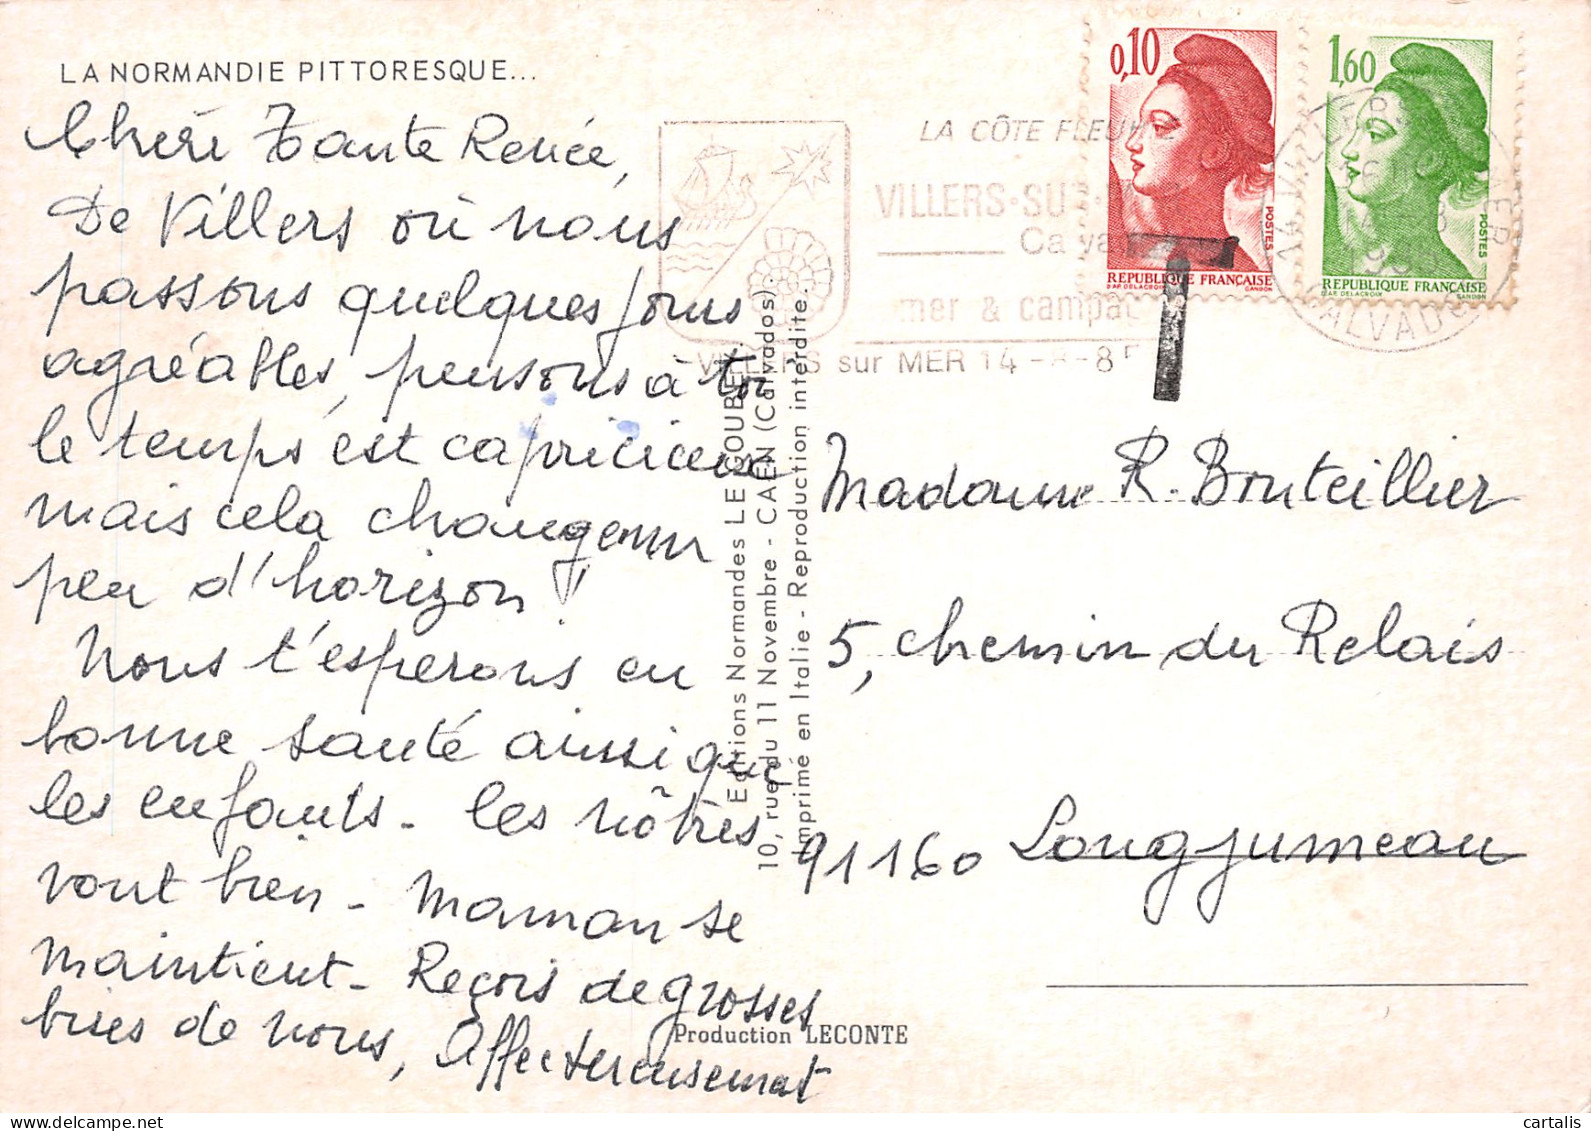 LA NORMANDIE PITTORESQUE...
Chère Tante Renée,
De Villers où nous
passons quelques jours
agréables, pensons à toi
le temps est capricieux
mais cela change un
peu d'horizon !
Nous t'espérons en
bonne santé ainsi que
les enfants - les nôtres
vont bien - Maman se
maintient - Reçois de grosses
bises de nous, Affectueusement
Production LECONTE
Editions Normandes LE GOUBEY
10, rue du 11 Novembre - CAEN (Calvados).
Imprimé en Italie - Reproduction interdite.
LA CÔTE FLEU
VILLERS·SUR·
Ca va
mer & campag
VILLERS sur MER 14 - 8-85
0,10
POSTES
REPUBLIQUE FRANÇAISE
D'AP. DELACROIX GANDON
1,60
POSTES
REPUBLIQUE FRANÇAISE
D'AP. DELACROIX GANDON
CALVADOS
Madame R. Bouteillier
5, chemin du Relais
91160 Longjumeau